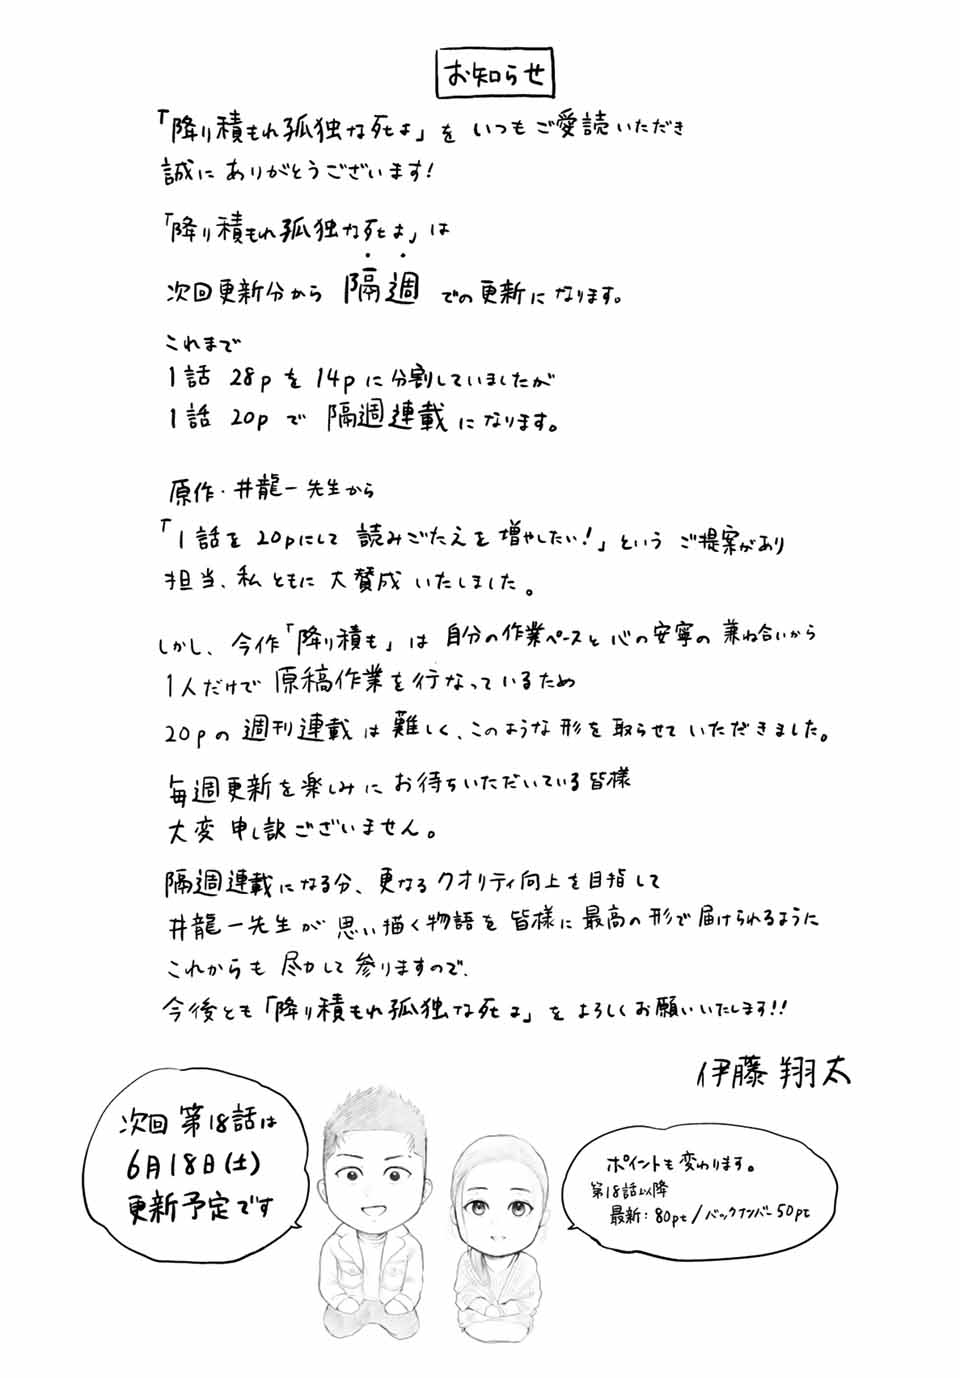 お知らせ
「降り積もれ孤独な死よ」を いつもご愛読いただき
誠に ありがとうございます!
「降り積もれ孤独な死よ」は
次回更新分から 隔週 での更新になります。
これまで
1話 28pを14pに分割していましたが
1話 20pで 隔週連載になります。
原作・井龍一先生から
「1話を20pにして 読みごたえを増やしたい!」という ご提案があり
担当、私ともに 大賛成いたしました。
しかし、今作「降り積も」は 自分の作業ペースと心の安寧の兼ね合いから
1人だけで 原稿作業を行なっているため
20pの 週刊連載は難しく、このような形を取らせていただきました。
毎週更新を楽しみに お待ちいただいている皆様
大変 申し訳ございません。
隔週連載になる分、更なるクオリティ向上を目指して
井龍一先生が 思い描く物語を 皆様に最高の形で届けられるように
これからも 尽力して参りますので、
今後とも「降り積もれ孤独な死よ」を よろしくお願いいたします!!
伊藤 翔太
次回 第18話は
6月18日(土)
更新予定です
ポイントも変わります。
第18話以降
最新:80pt/バックナンバー50pt